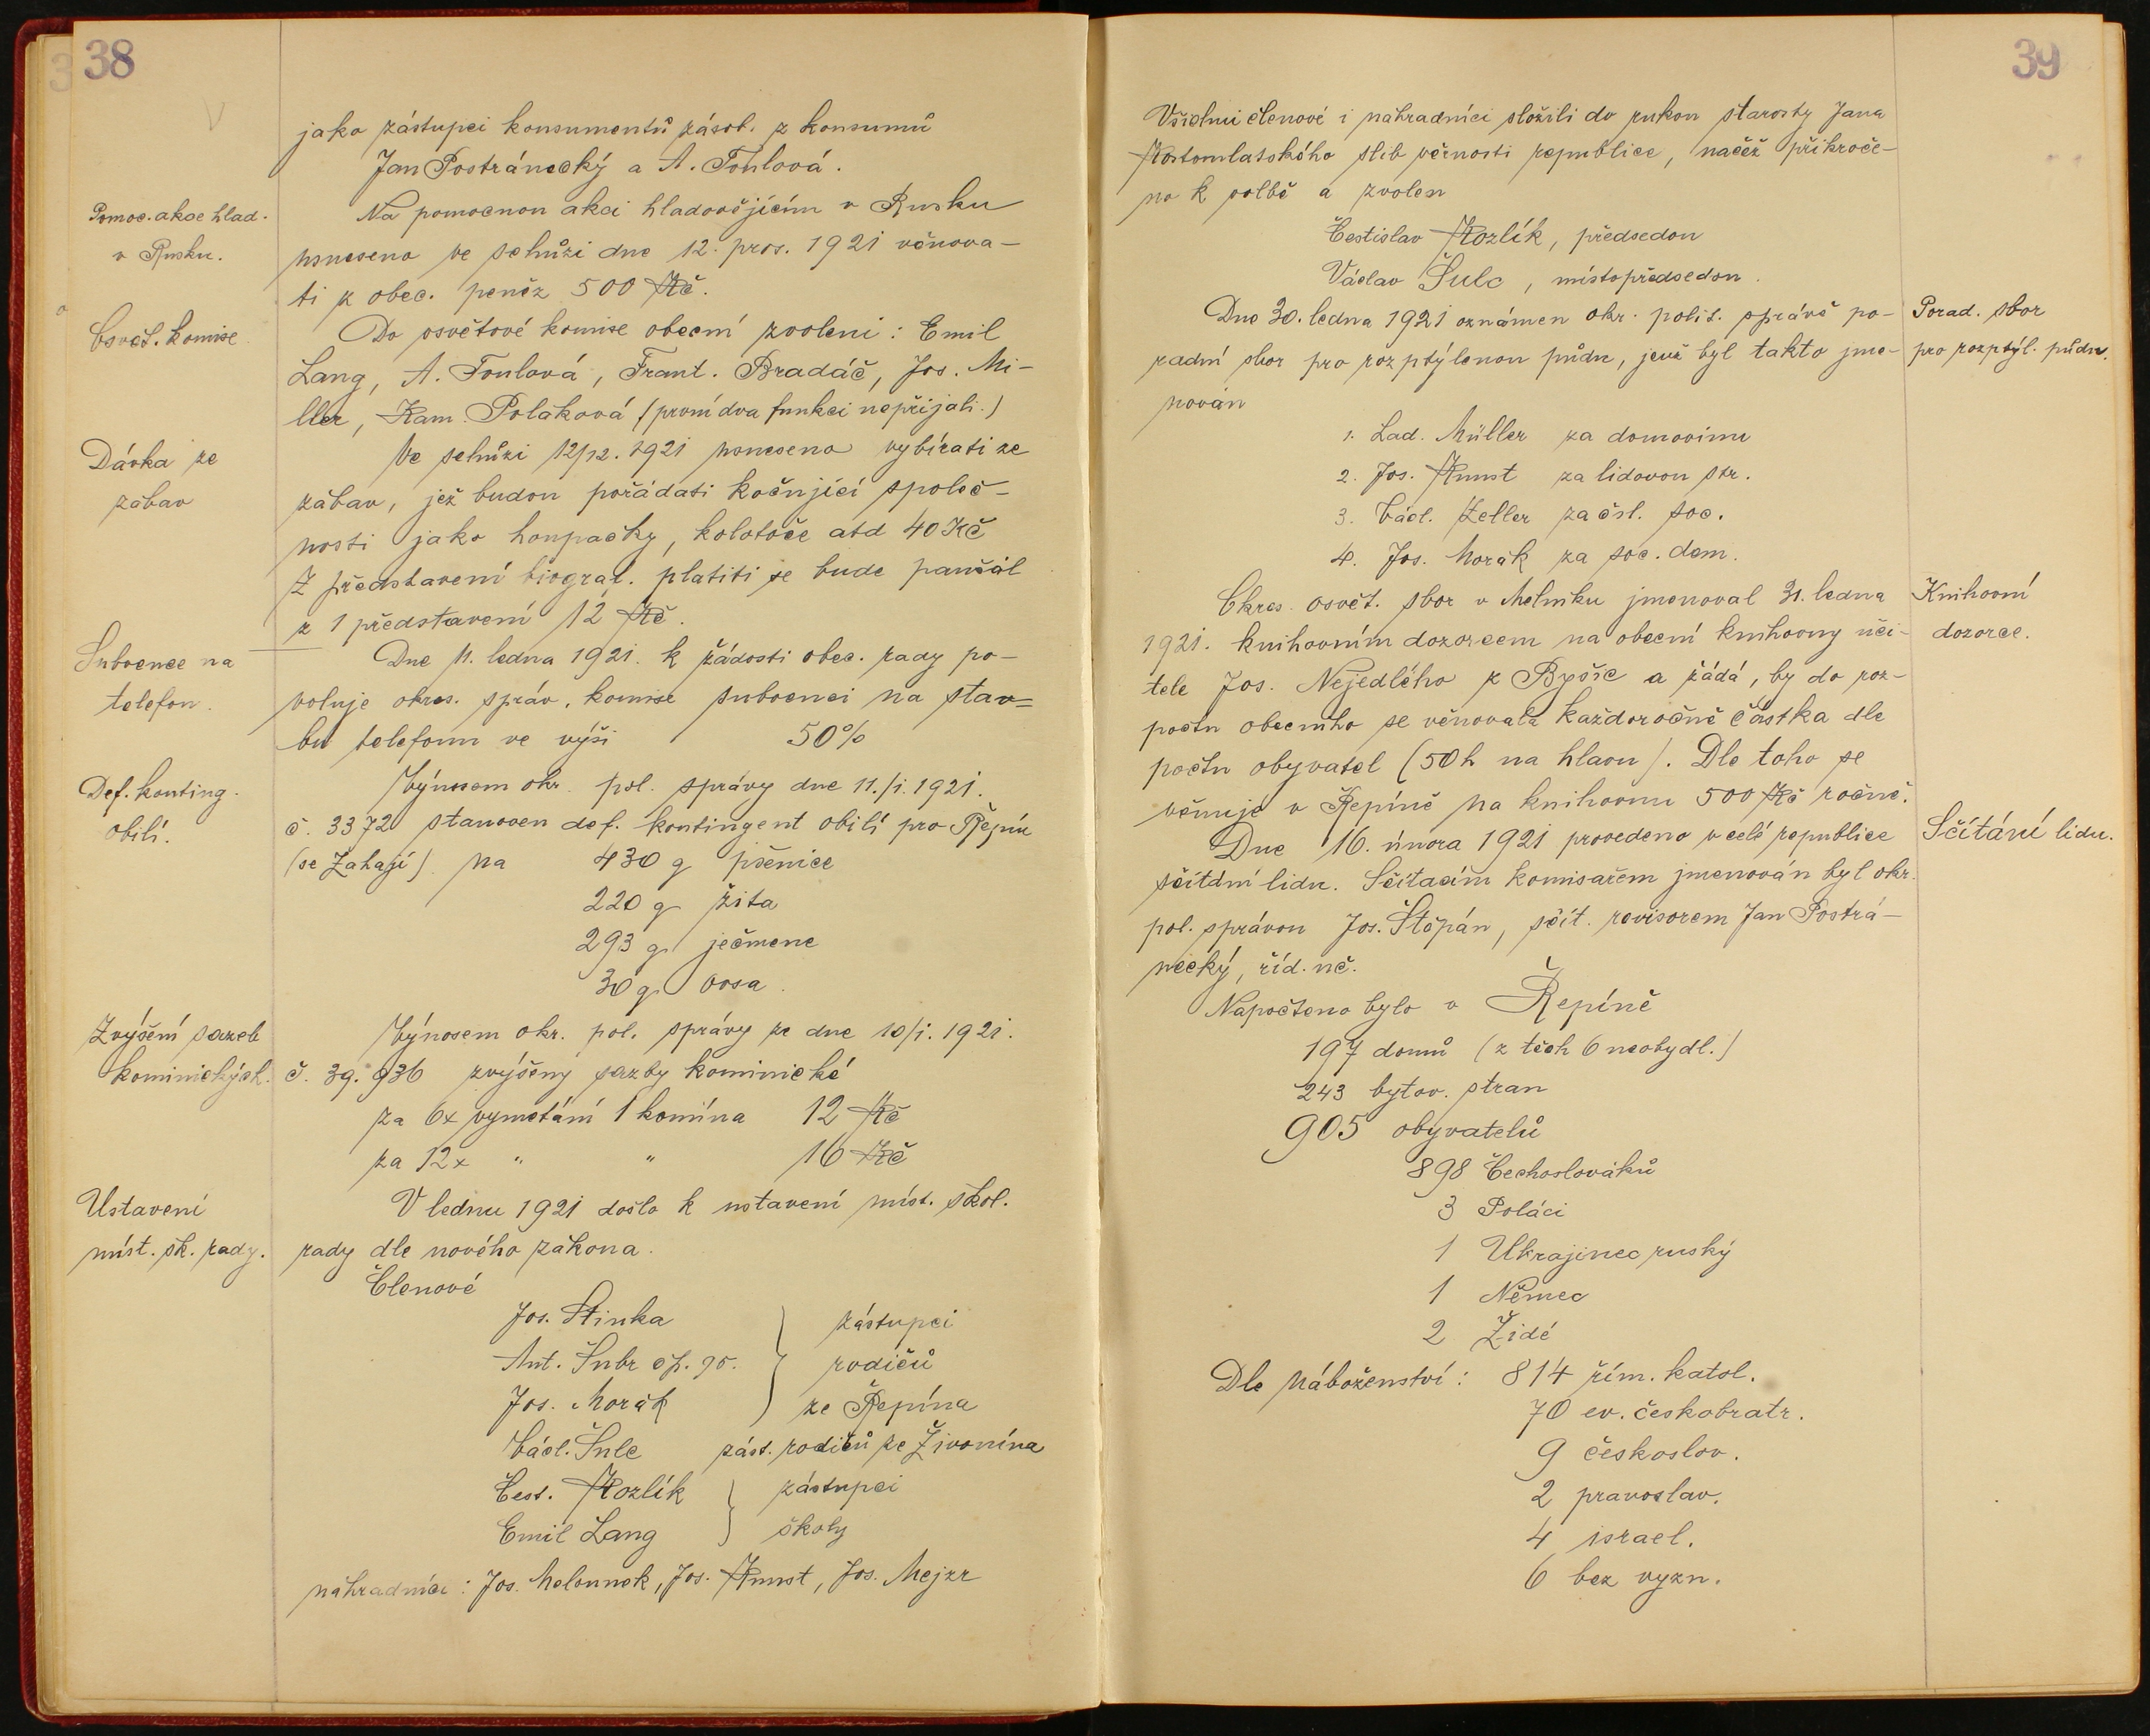 38
jako zástupci konsumentů zásob. z konsumů
Jan Postránecký a A. Toulová.
Pomoc. akce hlad.
v Rusku.
Na pomocnou akci hladovějícím v Rusku
usneseno ve schůzi dne 12. pros. 1921 věnova-
ti z obec. peněz 500 Kč.
Osvět. komise
Do osvětové komise obecní zvoleni: Emil
Lang, A. Toulová, Frant. Bradáč, Jos. Mi-
ller, Kam. Poláková (první dva funkci nepřijali.)
Dávka ze
zábav
Ve schůzi 12/12. 1921 usneseno vybírati ze
zábav, jež budou pořádati kočující společ-
nosti jako houpačky, kolotoče atd 40 Kč
Z představení biograf. platiti se bude paušál
z 1 představení 12 Kč.
Subvence na
telefon.
Dne 11. ledna 1921. k žádosti obec. rady po-
voluje okres. správ. komise subvenci na stav=
bu telefonu ve výši 50%
Def. konting.
obilí.
Výnosem okr. pol. správy dne 11./i. 1921.
č. 3372 stanoven def. kontingent obilí pro Řepín
(se Zahájí) na 430 q pšenice
220 q žita
293 q ječmene
30 q ovsa.
Zvýšení sazeb
kominických.
Výnosem okr. pol. správy ze dne 10/i. 1921.
č. 39.936 zvýšeny sazby kominické
za 6x vymetání 1 komína 12 Kč
za 12x " " 16 Kč
Ustavení
míst. šk. rady.
V lednu 1921 došlo k ustavení míst. škol.
rady dle nového zákona.
Členové
Jos. Stinka
Ant. Šubr čp. 95.
Jos. Morák
zástupci
rodičů
ze Řepína
Václ. Šulc zást. rodičů ze Živonína
Čest. Kozlík
Emil Lang
zástupci
školy
náhradníci: Jos. Melounek, Jos. Kunst, Jos. Mejzr
39
Všichni členové i náhradníci složili do rukou starosty Jana
Kostomlatského slib věrnosti republice, načež přikroče-
no k volbě a zvolen
Čestislav Kozlík, předsedou
Václav Šulc, místopředsedou.
Porad. sbor
pro rozptýl. půdu.
Dne 30. ledna 1921 oznámen okr. polit. správě po-
radní sbor pro rozptýlenou půdu, jenž byl takto jme-
nován
1. Lad. Müller za domovinu
2. Jos. Kunst za lidovou str.
3. Václ. Zeller za čsl. soc.
4. Jos. Morák za soc. dem.
Knihovní
dozorce.
Okres. osvět. sbor v Mělníku jmenoval 31. ledna
1921. knihovním dozorcem na obecní knihovny uči-
tele Jos. Nejedlého z Byšic a žádá, by do roz-
počtu obecního se věnovala každoročně částka dle
počtu obyvatel (50 h na hlavu). Dle toho se
věnuje v Řepíně na knihovnu 500 Kč ročně.
Sčítání lidu.
Dne 16. února 1921 provedeno v celé republice
sčítání lidu. Sčítacím komisařem jmenován byl okr.
pol. správou Jos. Štěpán, sčít. revisorem Jan Postrá-
necký, říd. uč.
Napočteno bylo v Řepíně
197 domů (z těch 6 neobydl.)
243 bytov. stran
905 obyvatelů
898 Čechoslováků
3 Poláci
1 Ukrajinec ruský
1 Němec
2 Židé
Dle náboženství: 814 řím. katol.
70 ev. českobratr.
9 českoslov.
2 pravoslav.
4 israel.
6 bez vyzn.